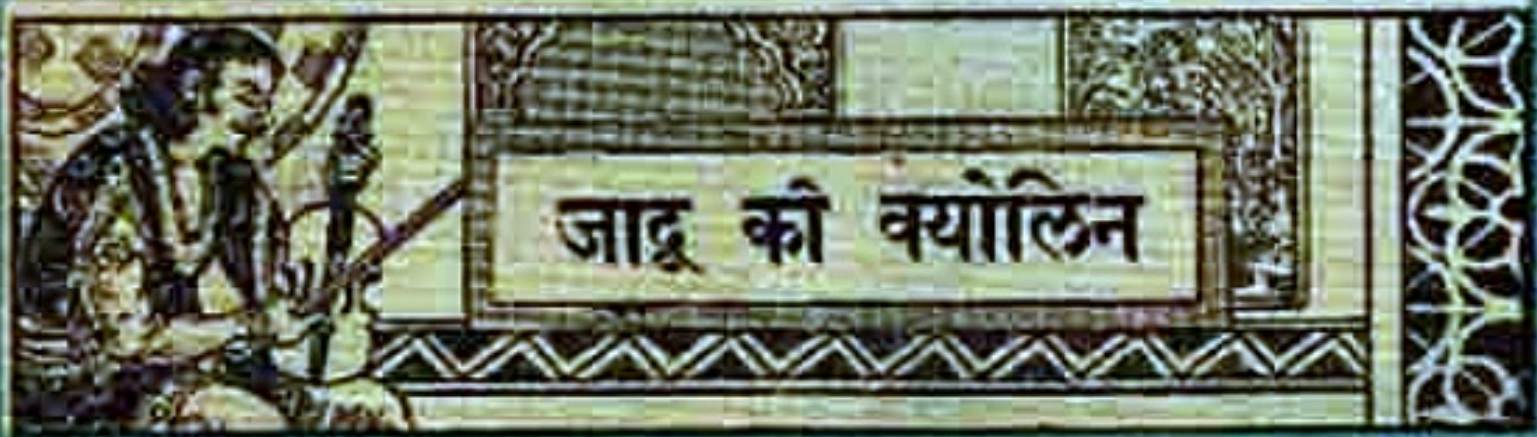 जादू की क्योलिन